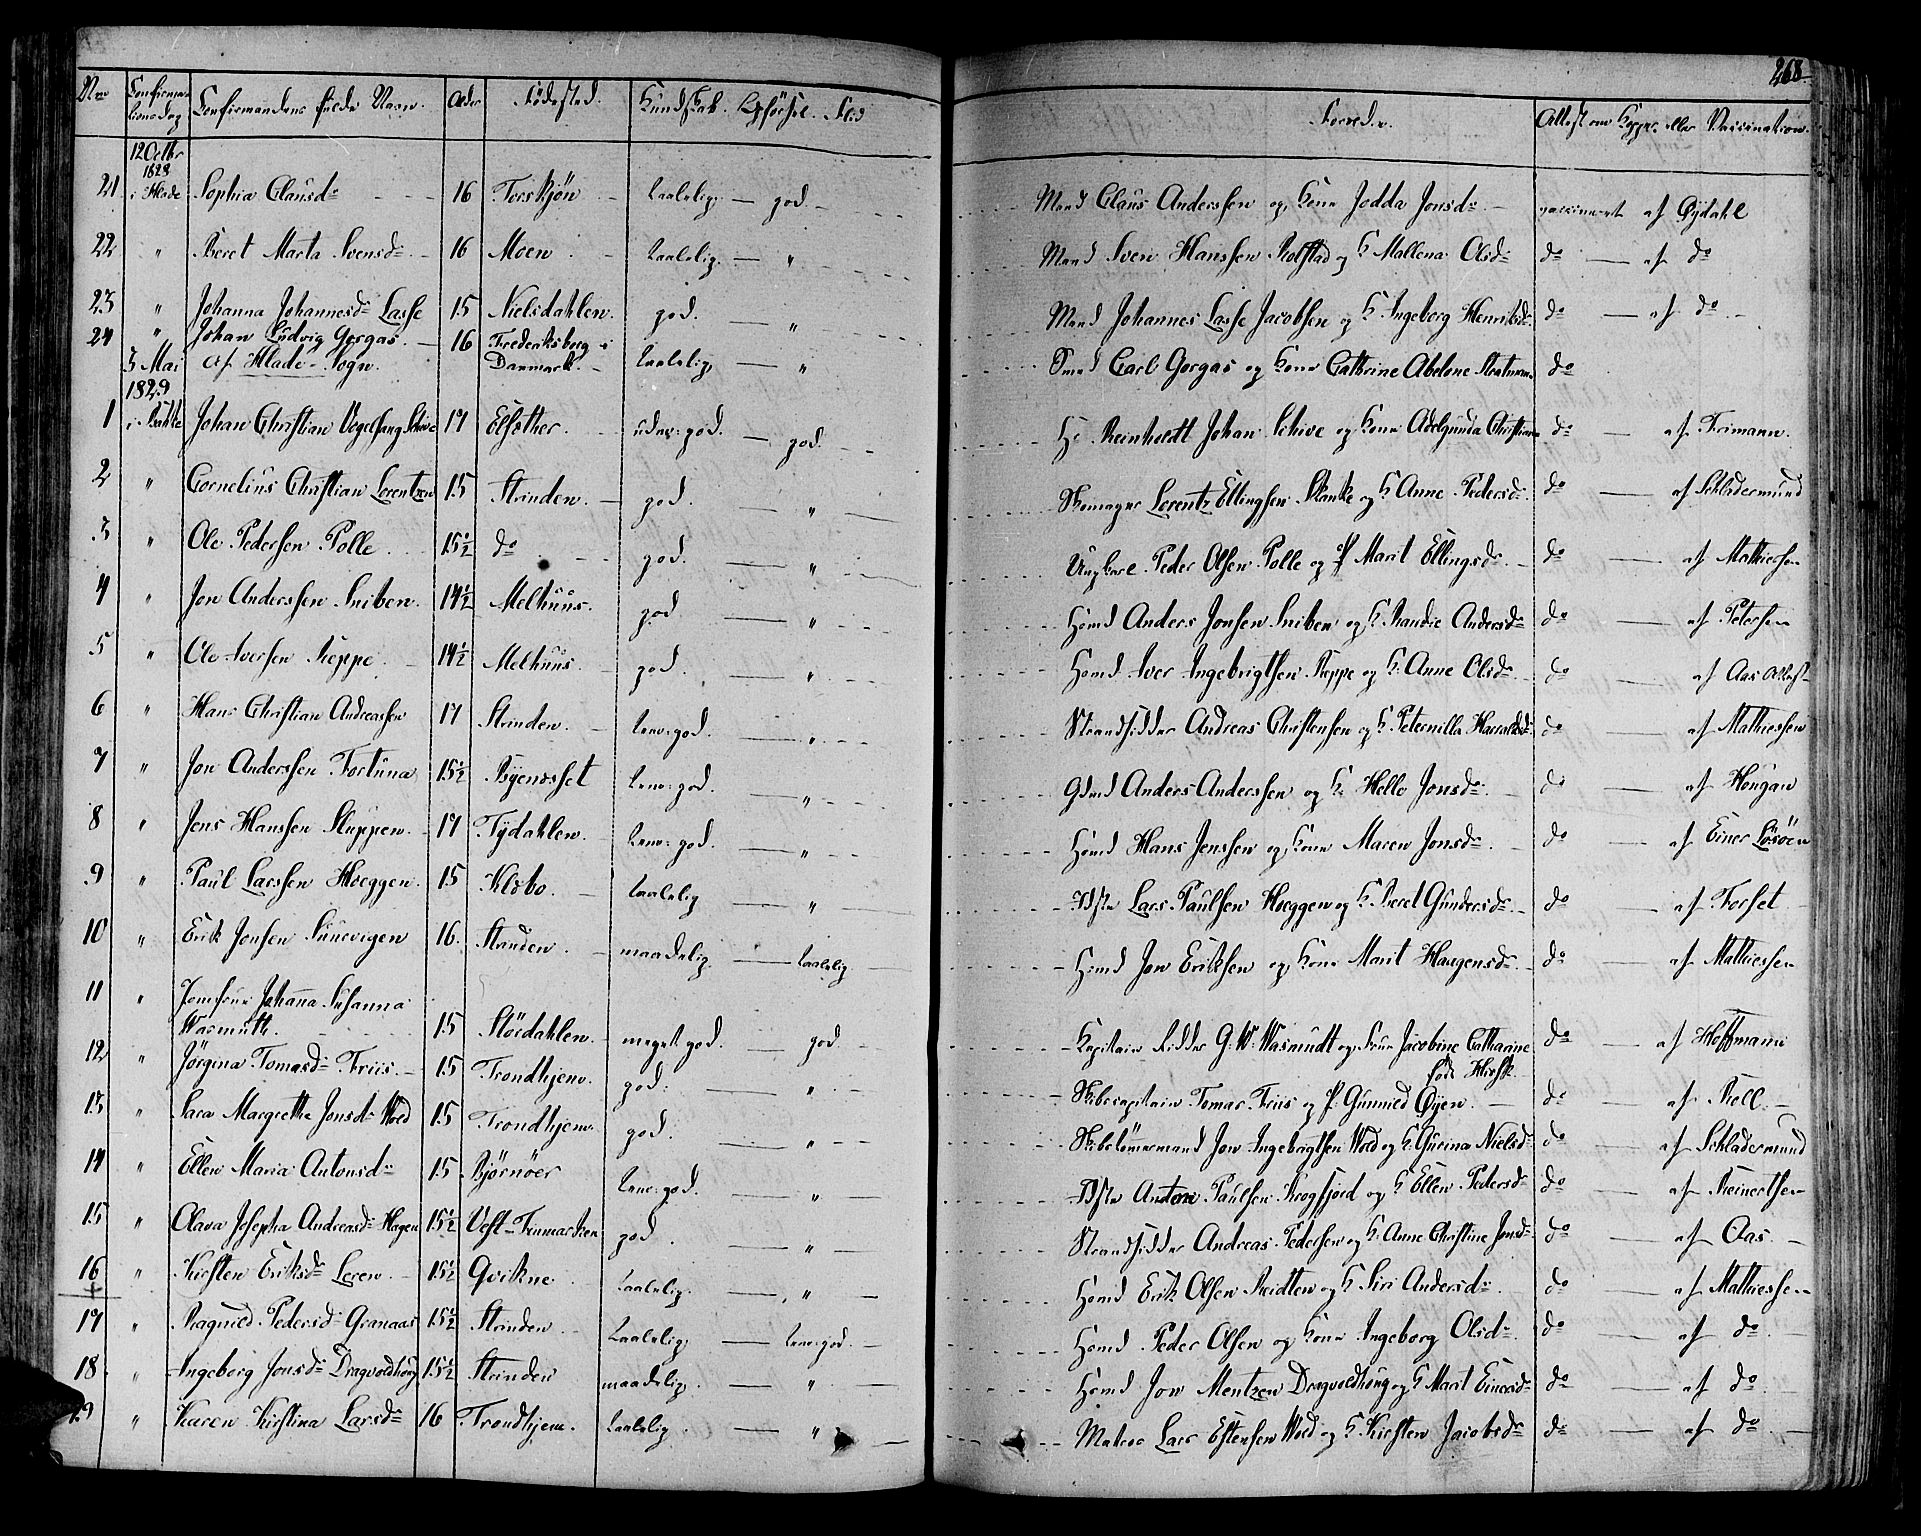 268
No Confirmations Dag Confirmandens fulde Navn. Alder Fødested. Kundskab. Opførsel. Flid Forældre. Attest om Kopper eller Vaccination.
12 Octbr 1828 i Hlade
21 Sophia Clausd: 16 Forskjøn taalelig. — god. Mand Claus Anderssen og Kone Jodda Jonsd: vaccineret af Øydahl
22 " Beret Marta Svensd: 16 Moen taalelig. — " Mand Sven Hanssen Rolstad og K. Mallena Olsd: do — af do
23 " Johanna Johannesd: Lasse 15 Nielsdahlen. god. — " Mand Johannes Lasse Jacobsen og K. Ingeberg Henriksd: do — af do
24 " Johan Ludvig Gorgas. 16 Frederiksborg i Danmark. taalelig — " Smed Carl Gorgas og Kone Cathrine Abelone do
af Hlade-Sogn.
3 Mai 1829 i Bakke
1 Johan Christian Vogelsang Schive 17 Elsther. udm: god. — god. Hr Reinholdt Johan Schive og Kone Adelgunda Christiane do — af Frimann.
2 " Cornelius Christian Lorentzen 15 Strinden. god. — " Skomager Lorentz Ellingsen Skanke og K. Anne Pedersd: do — af Schladermund
3 " Ole Pedersen Tolle 15½ do god. — " Ungkarl Peder Olsen Tolle og P. Marit Ellingsd: do — af Mathiessen
4 " Jon Anderssen Sniben. 14½ Melhuus. god — " Hmd Anders Jonsen Sniben og K. Randie Andersd: do — af Petersen
5 " Ole Iversen Reppe 14½ Melhuus. god. — " Hmd Iver Ingebrigtsen Reppe og K. Anne Olsd: do — af Aas Attest
6 " Hans Christian Andreassen 17 Strinden. temm: god. — " Strandsidder Andreas Christensen og K. Peternilla Harraldsd: do — af Mathiessen
7 " Jon Anderssen Fortuna 15½ Byenesset temm: god. — " Gdmd Anders Anderssen og K. Helle Jonsd: do — af Hougan
8 " Jens Hanssen Sluppen. 17 Tydahlen. temm: god. — " Hmd Hans Jenssen og Kone Maren Jonsd: do — af Einer Løsøen
9 " Paul Larssen Hoeggen. 15 Klæbo. taalelig — " Inste Lars Paulsen Hoeggen og K. Beret Gundersd: do — af Forset
10 " Erik Jonsen Sunevigen 16. Strinden. maadelig. — taalelig Hmd Jon Eriksen og Kone Marit Haagensd: do — af Mathiessen
11 " Jomfrue Johanna Susanna Wasmuth. 15 Størdahlen. meget god. — god. Kapitain Ridder G. W. Wasmudt og Frue Jacobine Catharine født Hirsk do af Hoffmann
12 " Jørgina Tomasd: Friis. 15 Trondhjem. god. — " Skibscapitain Tomas Friis og P. Gunnild Øyen. do — af Rell.
13 " Sara Margrethe Jonsd: Wold 15 Trondhjem. god. — " Skibstømmermand Jon Ingebrigtsen Wold og K. Gurina Nielsd: do — af Schladermund
14 " Ellen Maria Antonsd: 15 Bjørnøer temm: god. — " Inste Anton Paulsen Krogfjord og K. Ellen Pedersd: do — af Reinertsen
15 " Olava Josepha Andreasd: Hagen 15½ Vest-Finmarken god. — " Strandsidder Andreas Pedersen og K. Anne Christine Jonsd: do — af Aas.
16 " Kirsten Eriksd: Leren 15½ Qvikne taalelig. — " Hmd Erik Olsen Reidten og K. Siri Andersd: do — af Mathiessen
17 " Ragnild Pedersd: Granaas 15½ Strinden taalelig — temm: god. Hmd Peder Olsen og Kone Ingeborg Olsd: do — af do.
18 " Ingeborg Jonsd: Dragvoldhoug 15½ Strinden maadelig. — " Hmd Jon Mentzen Dragvoldhoug og K. Marit Einersd: do — af do.
19 " Karen Kirstina Larsd: 16 Trondhjem. taalelig. — " Matros Lars Estensen Wold og K. Kirsten Jacobsd: do — af do.